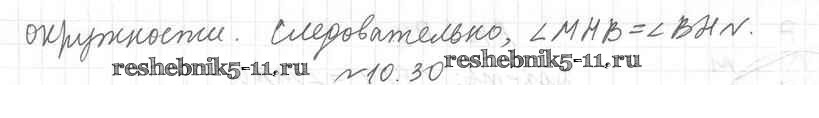 окружности. Следовательно, ∠MHB=∠BHN.
reshebnik5-11.ru №10.30 reshebnik5-11.ru